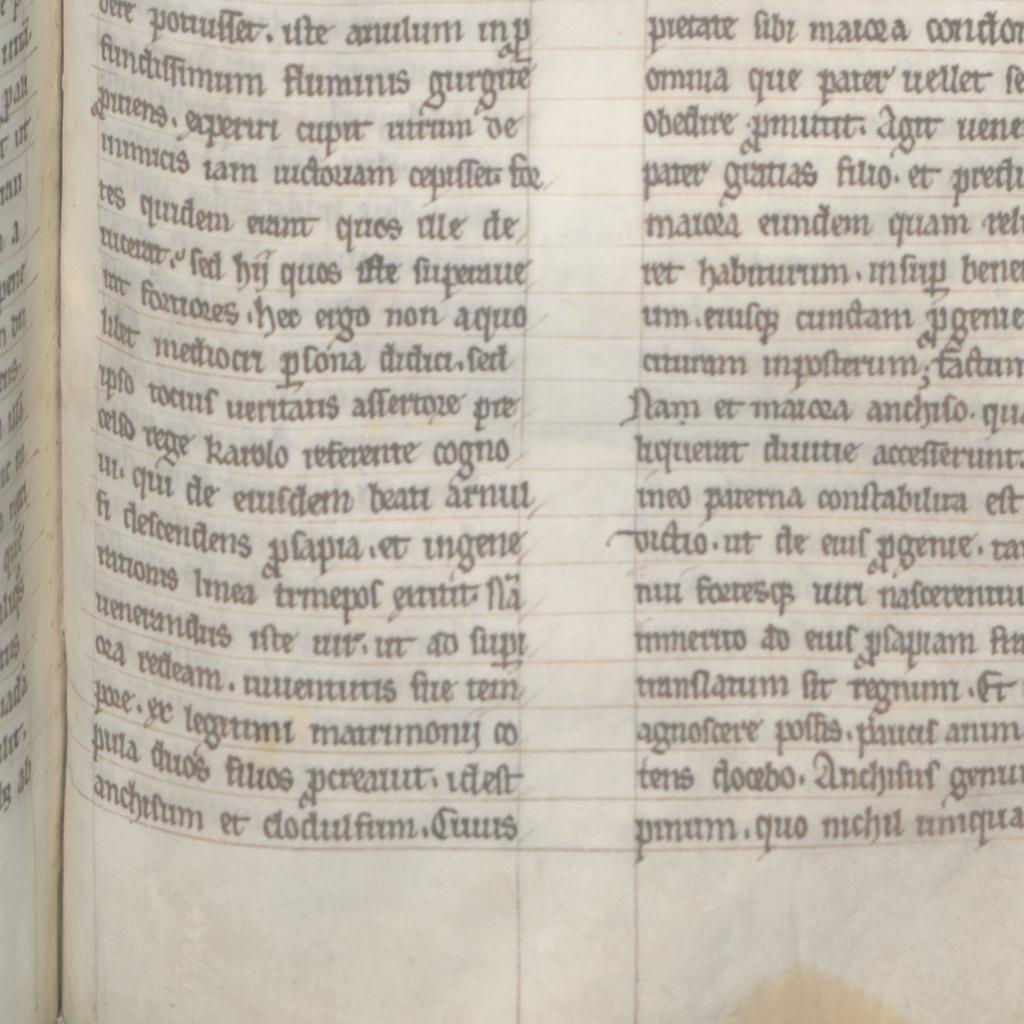 dere potuisset. iste anulum in ꝓ
fundissimum fluminis gurgite
ꝓiciens. experiri cupit utrum de
inimicis iam uictoriam cepisset. for
tes quidem erant quos ille de
uicerat. sed hij quos iste superaue
rit fortiores. hec ergo non a quo
libet mediocri ꝑsona didici. sed
ipso tocius ueritatis assertore pre
celso rege karolo referente cogno
ui. qui de eiusdem beati arnul
fi descendens ꝓsapia. et in gene
rationis linea trinepos extitit. Nā
uenerandus iste uir. ut ad supi
ora redeam. iuuentutis sue tem
pore. ex legitimi matrimonij co
pula duos filios ꝓcreauit. id est
anchisum et clodulfum. Cuius
pietate sibi maiora
omnia que pater uellet se
obedire ꝓmittit. Agit
pater gratias filio. et
maiora eundem quam
ret habiturum. insuꝑ
um. eiusqꝫ cunctam ꝓgenie
cituram inposterum; factum
Nam et maiora anchiso.
liquerat diuitie accesserunt.
in eo paterna constabilita est
dictio. ut de eius ꝓgenie.
nui fortesqꝫ uiri
inmerito ad eius ꝓsapiam
translatum sit regnum. Et
agnoscere possis. paucis
tens docebo. Anchisus
pinum. quo nichil umqua